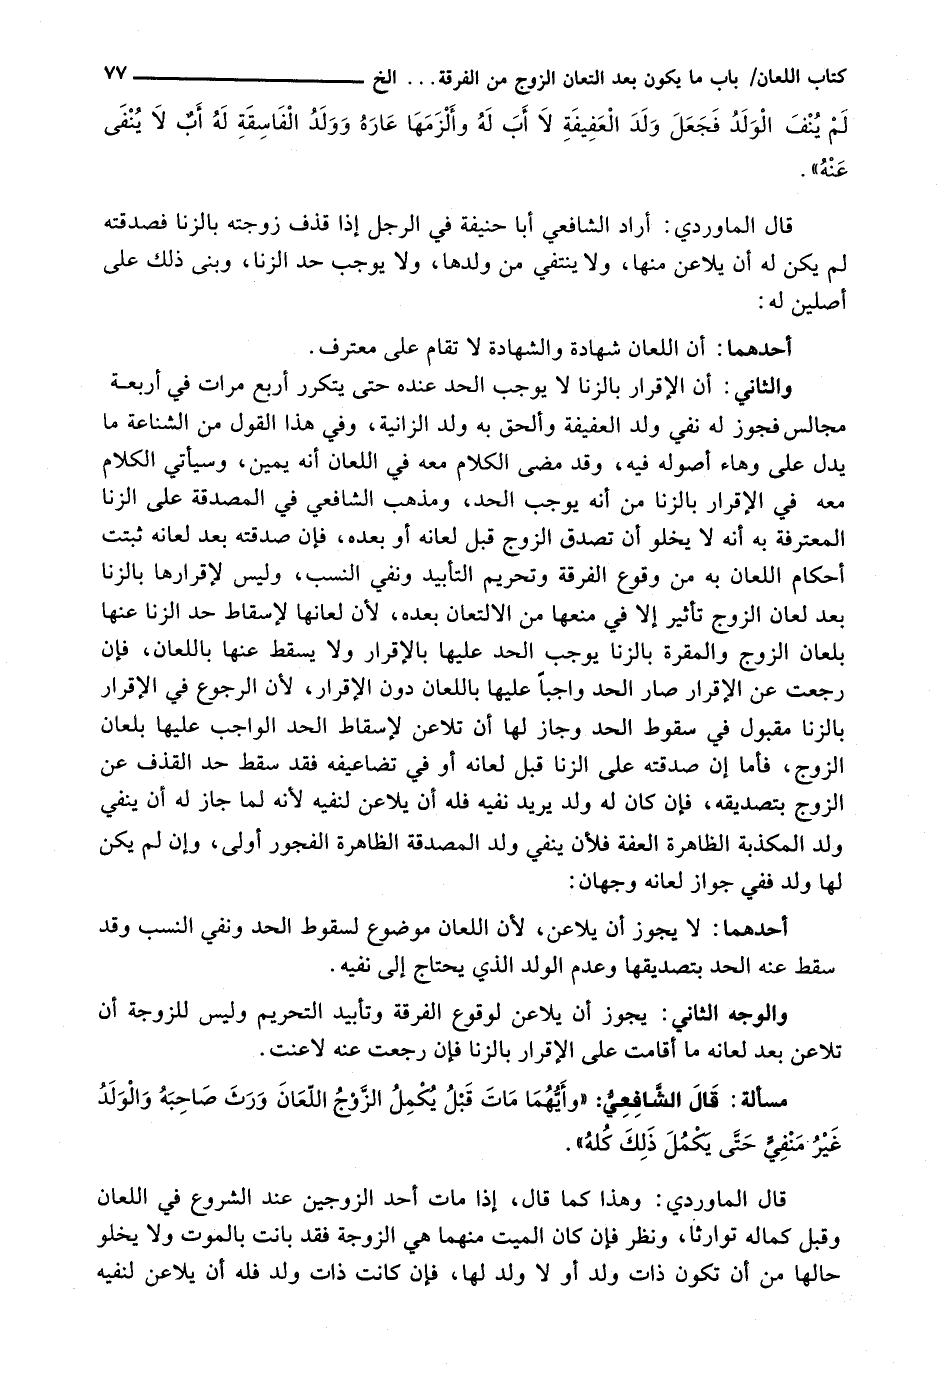 كتاب اللعان/ باب ما يكون بعد التعان الزوج من الفرقة... الخ ٧٧
لَمْ يُنْفَ الْوَلَدُ فَجَعَلَ وَلَدَ الْعَفِيفَةِ لاَ أَبَ لَهُ وأَلْزَمَهَا عَارَهُ وَوَلَدُ الْفَاسِقَةِ لَهُ أَبٌ لاَ يُنْفَى
عَنْهُ».
قال الماوردي: أراد الشافعي أبا حنيفة في الرجل إذا قذف زوجته بالزنا فصدقته
لم يكن له أن يلاعن منها، ولا ينتفي من ولدها، ولا يوجب حد الزنا، وبنى ذلك على
أصلين له:
أحدهما: أن اللعان شهادة والشهادة لا تقام على معترف.
والثاني: أن الإقرار بالزنا لا يوجب الحد عنده حتى يتكرر أربع مرات في أربعة
مجالس فجوز له نفي ولد العفيفة وألحق به ولد الزانية، وفي هذا القول من الشناعة ما
يدل على وهاء أصوله فيه، وقد مضى الكلام معه في اللعان أنه يمين، وسيأتي الكلام
معه في الإقرار بالزنا من أنه يوجب الحد، ومذهب الشافعي في المصدقة على الزنا
المعترفة به أنه لا يخلو أن تصدق الزوج قبل لعانه أو بعده، فإن صدقته بعد لعانه ثبتت
أحكام اللعان به من وقوع الفرقة وتحريم التأبيد ونفي النسب، وليس لإقرارها بالزنا
بعد لعان الزوج تأثير إلا في منعها من الالتعان بعده، لأن لعانها لإسقاط حد الزنا عنها
بلعان الزوج والمقرة بالزنا يوجب الحد عليها بالإقرار ولا يسقط عنها باللعان، فإن
رجعت عن الإقرار صار الحد واجباً عليها باللعان دون الإقرار، لأن الرجوع في الإقرار
بالزنا مقبول في سقوط الحد وجاز لها أن تلاعن لإسقاط الحد الواجب عليها بلعان
الزوج، فأما إن صدقته على الزنا قبل لعانه أو في تضاعيفه فقد سقط حد القذف عن
الزوج بتصديقه، فإن كان له ولد يريد نفيه فله أن يلاعن لنفيه لأنه لما جاز له أن ينفي
ولد المكذبة الظاهرة العفة فلأن ينفي ولد المصدقة الظاهرة الفجور أولى، وإن لم يكن
لها ولد ففي جواز لعانه وجهان:
أحدهما: لا يجوز أن يلاعن، لأن اللعان موضوع لسقوط الحد ونفي النسب وقد
سقط عنه الحد بتصديقها وعدم الولد الذي يحتاج إلى نفيه.
والوجه الثاني: يجوز أن يلاعن لوقوع الفرقة وتأبيد التحريم وليس للزوجة أن
تلاعن بعد لعانه ما أقامت على الإقرار بالزنا فإن رجعت عنه لاعنت.
مسألة: قَالَ الشَّافِعِيُّ: «وأَيُّهُمَا مَاتَ قَبْلُ يُكْمِلُ الزَّوْجُ اللّعَانَ وَرَثَ صَاحِبَهُ وَالْوَلَدُ
غَيْرُ مَنْفِيٍّ حَتَّى يَكْمُلَ ذَلِكَ كُلهُ».
قال الماوردي: وهذا كما قال، إذا مات أحد الزوجين عند الشروع في اللعان
وقبل كماله توارثا، ونظر فإن كان الميت منهما هي الزوجة فقد بانت بالموت ولا يخلو
حالها من أن تكون ذات ولد أو لا ولد لها، فإن كانت ذات ولد فله أن يلاعن لنفيه